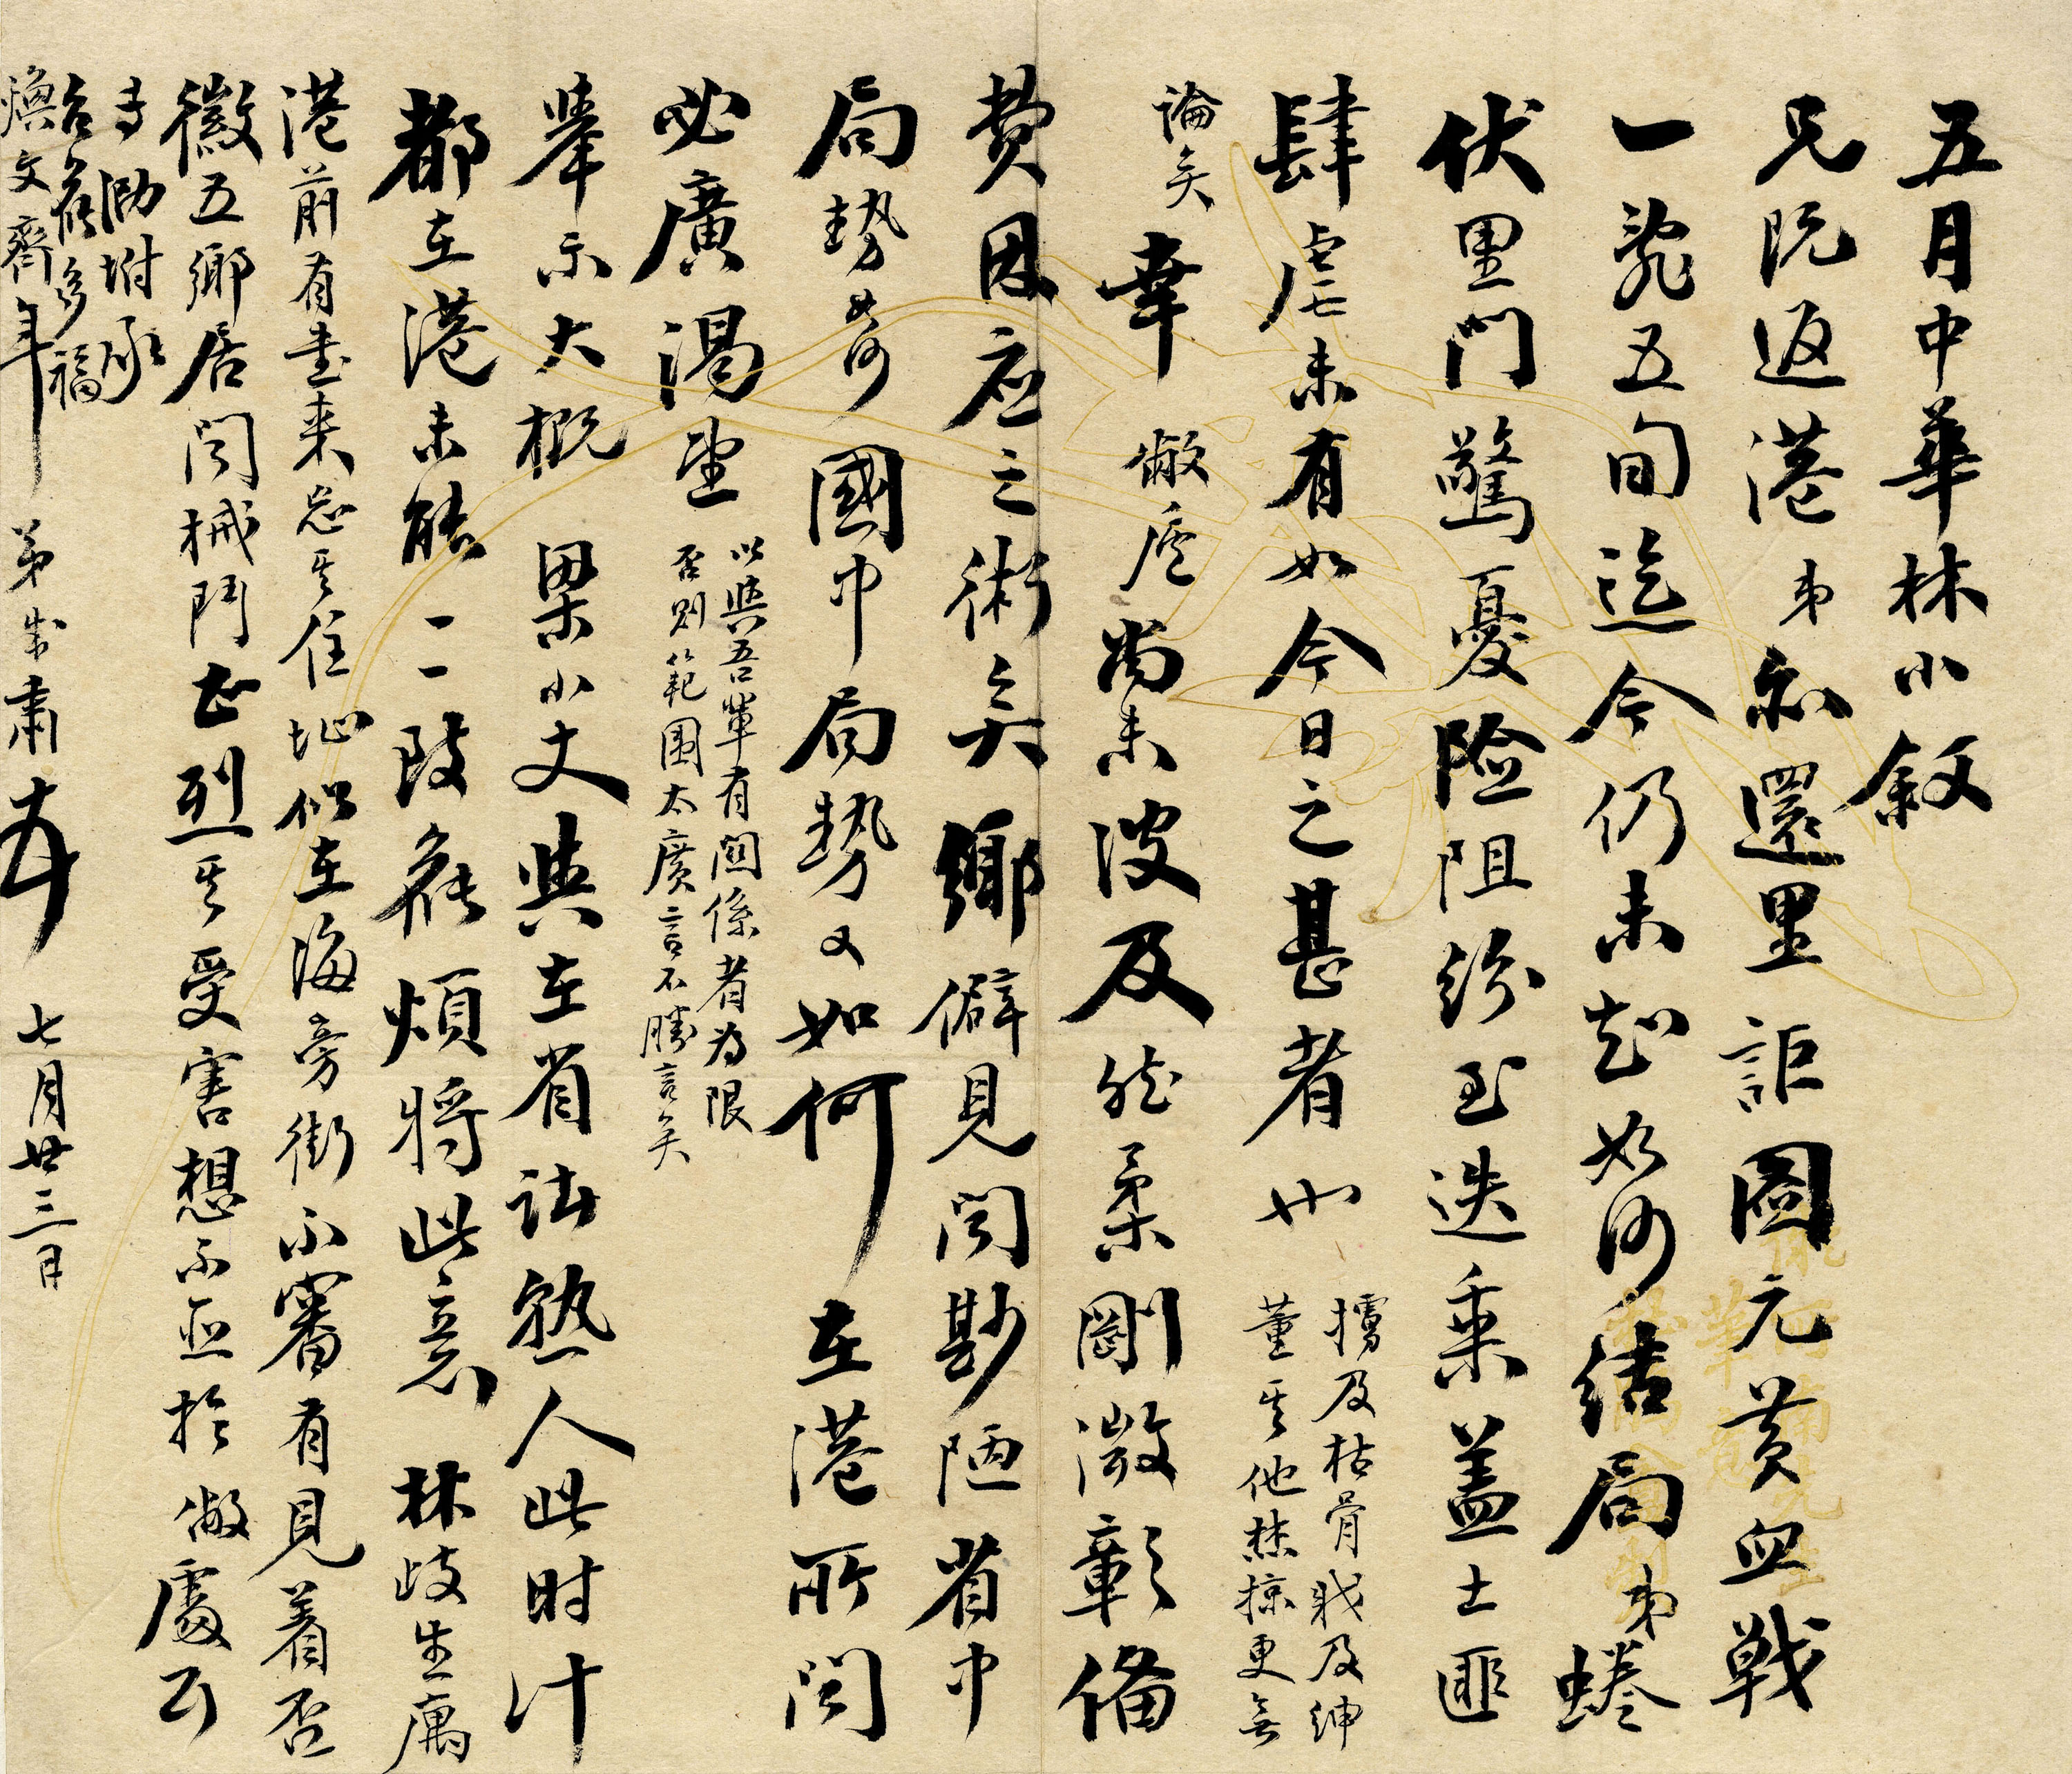 五月中華林小敘
兄既返港弟亦還里詎圖元黃血戰
一亂五旬迄今仍未知如何結局弟蜷
伏里門驚憂險阻紛至迭乘蓋土匪
肆虐未有如今日之甚者也
擄及枯骨戕及紳
董其他焚掠更無
論矣
幸敝廬尚未波及然柔剛微彰備
費因應之術矣鄉僻見聞尠陋省中
局勢如何國中局勢又如何在港所聞
必廣渴望
以與吾輩有關係者為限
否則範圍太廣言不勝言矣
舉示大概梁小丈與在省諸熟人此时計
都在港未能一一致候煩將此意林歧生厲
港前有書来忘其住址似在海旁街不審有見着否
徽五鄉居聞械鬥甚烈其受害想不亞於敝處云
專泐坿承
台候多福
煥文齊年 弟 肅 七月廿三日